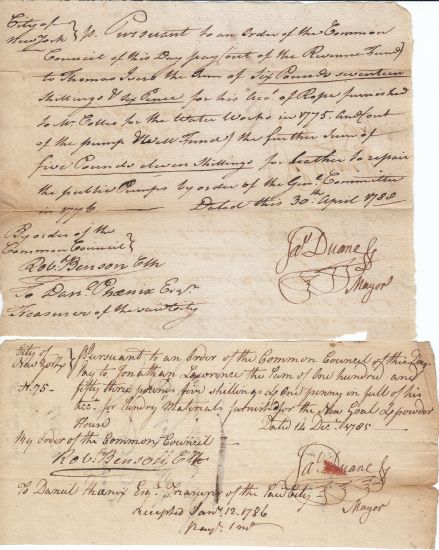 City of
New York } ss. Pursuant to an Order of the Common
Council of this Day pay (out of the Revenue Fund)
to Thomas Ivers the Sum of Six Pounds seventeen
shillings & six Pence for his Acct. of Rope furnished
to Mr. Colles for the Water Works in 1775. And (out
of the pump & Well Fund) the further Sum of
five Pounds eleven Shillings for leather to repair
the public Pumps by order of the Genl. Committee
in 1776. Dated this 30th. April 1788
By order of the
Common Council }
Rob. Benson Clk
Jas. Duane
Mayor
To Danl. Phœnix Esqr.
Treasurer of the said City
City of
New York } Pursuant to an Order of the Common Council of this Day
pay to Jonathan Lawrence the Sum of One hundred and
No. 75 fifty three pounds five shillings & One penny in full of his
Acct. for Sundry Materials furnished for the New Goal & powder
House Dated 14 Dec. 1785
By Order of the Common Council
Rob. Benson, Clk
Jas. Duane
Mayor
To Daniel Phœnix Esqr. Treasurer of the said City
Accepted Jany. 12. 1786